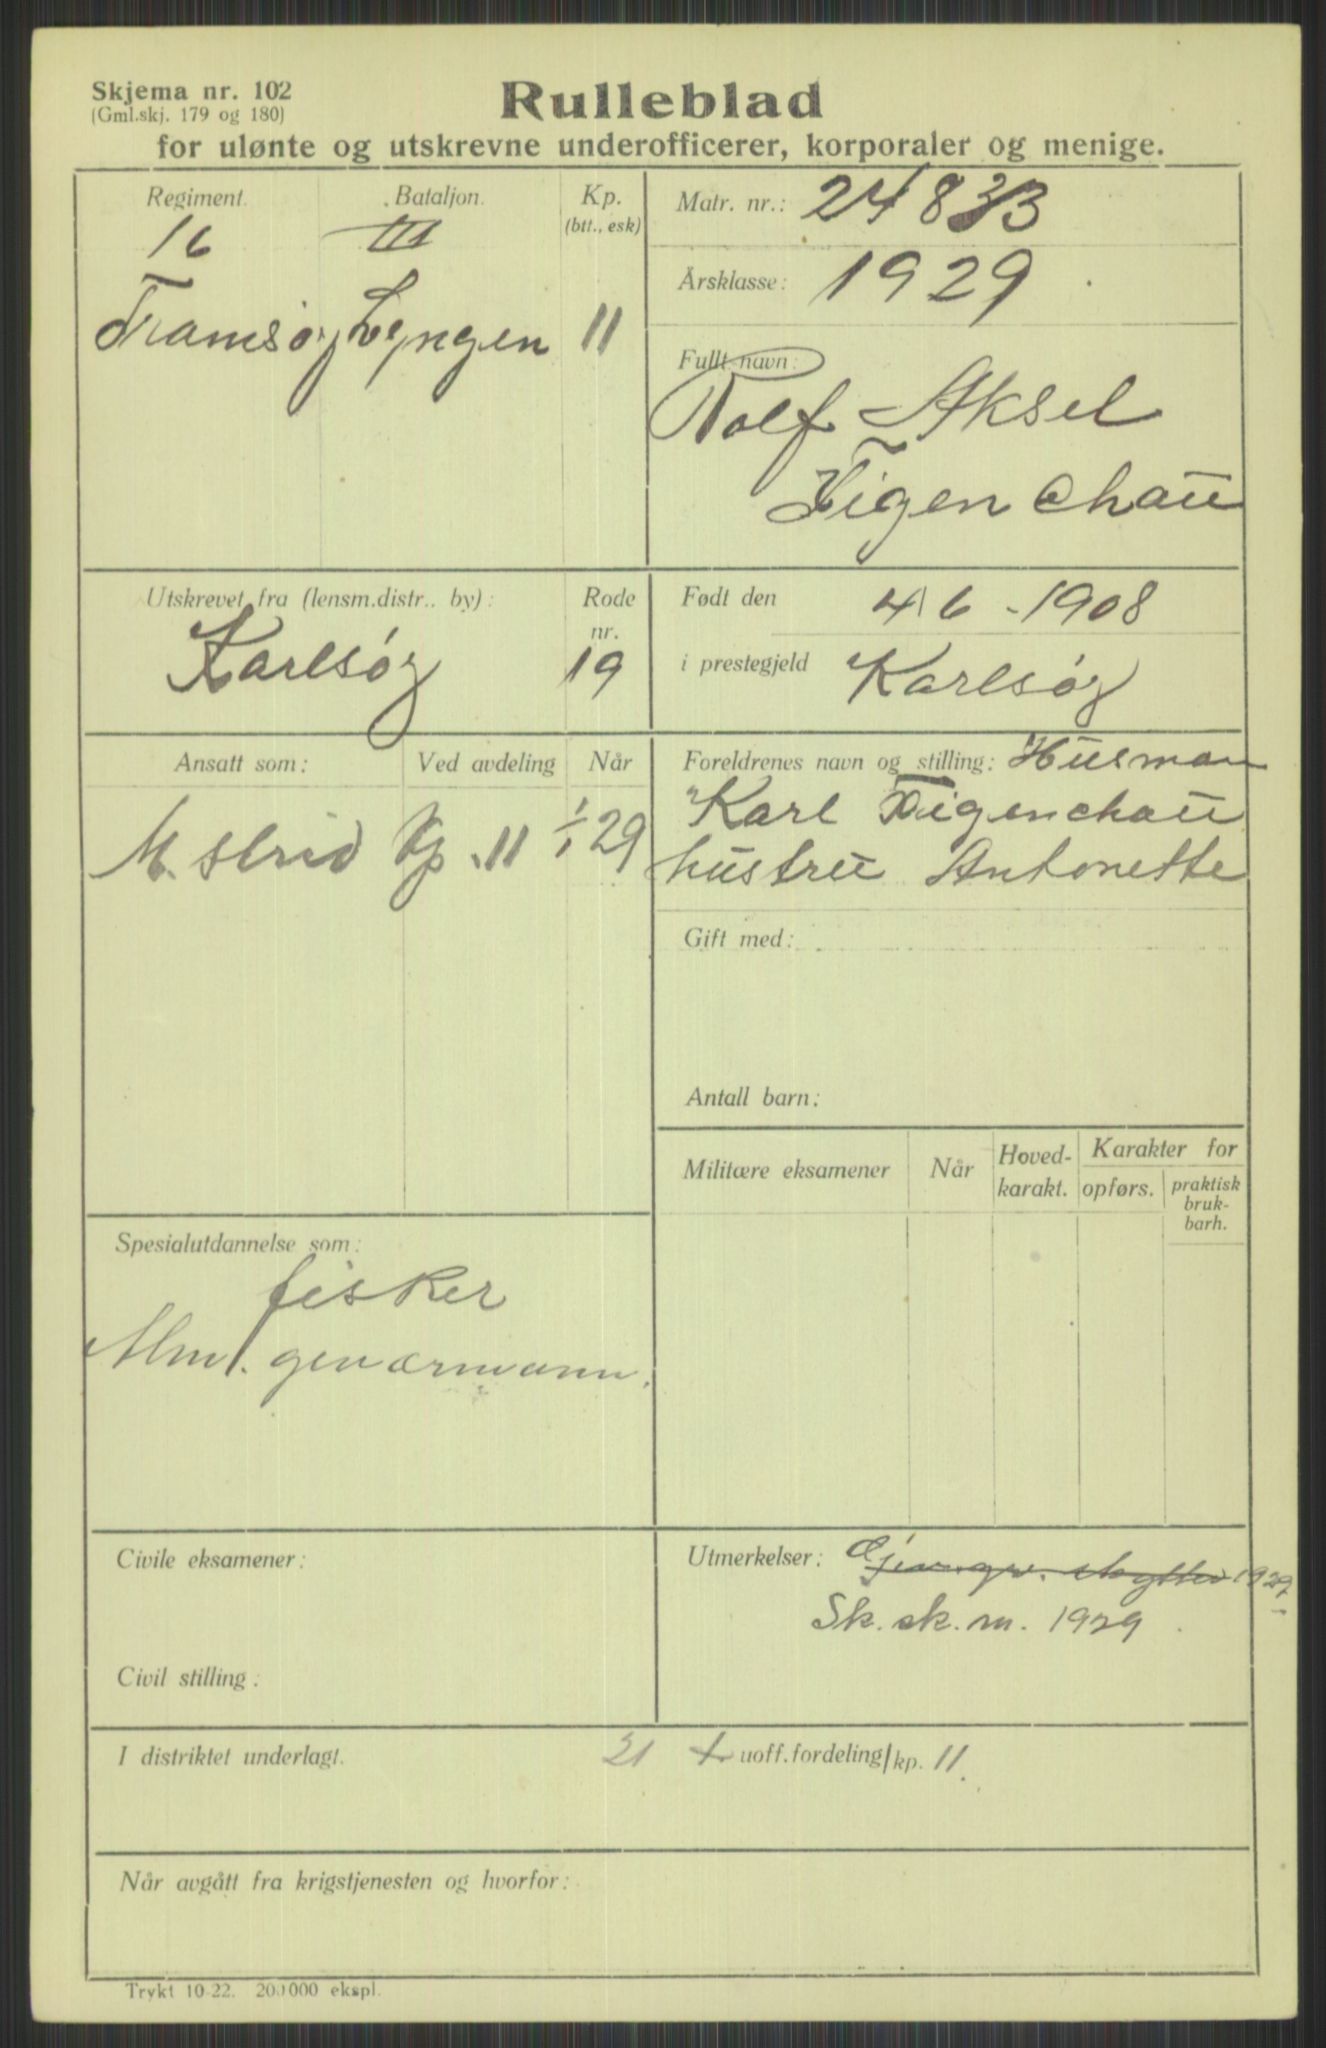 Skjema nr. 102
(Gml.skj. 179 og 180)
Rulleblad
for ulønte og utskrevne underofficerer, korporaler og menige.
Regiment. Bataljon. Kp.
(btt., esk)
16 III
Tromsøy Lyngen 11
Matr. nr.: 24833
Årsklasse: 1929
Fullt navn:
Rolf Aksel
Figenchau
Utskrevet fra (lensm.distr.. by): Rode
nr.
Karlsøy 19
Født den 4/6 - 1908
i prestegjeld Karlsøy
Ansatt som: Ved avdeling Når
M. strid Kp. 11 1/1 29
Foreldrenes navn og stilling: Husman
Karl Figenchau
hustru Antonette
Gift med:
Antall barn:
Militære eksamener Når Hoved-
karakt. Karakter for
opførs. praktisk
bruk-
barh.
Spesialutdannelse som:
fisker
Alm. geværmann.
Civile eksamener:
Civil stilling:
Utmerkelser: 1929
Sk. sk. m. 1929
I distriktet underlagt. 21 uoff.fordeling/kp. 11.
Når avgått fra krigstjenesten og hvorfor:
Trykt 10-22. 200000 ekspl.